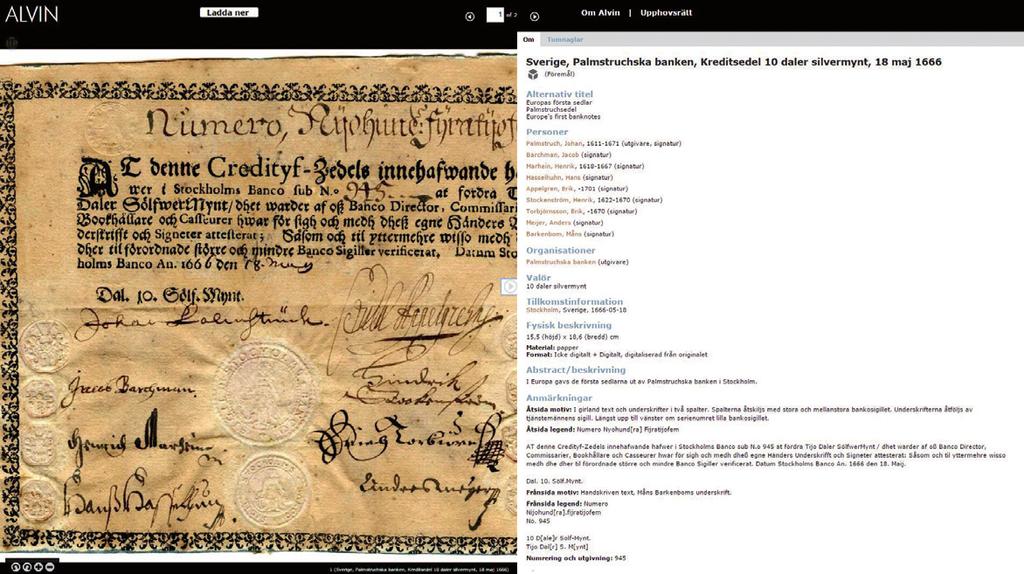 ALVIN
Ladda ner
1 of 2
Om Alvin | Upphovsrätt
Numero, Nijohund:fyratijof
AT denne Credityf-Zedels innehafwande h
wer i Stockholms Banco sub N.o 945 at fordra T
Daler SölfwerMynt/dhet warder af oß Banco Director, Commissar
Bookhållare och Casseurer hwar för sigh och medh dheß egne Händers U
derskrifft och Signeter attesterat; Såsom och til yttermehre wisso medh
dher til förordnade större och mindre Banco Sigiller verificerat, Datum Sto
holms Banco An. 1666 den 18. May
Dal. 10. Sölf. Mynt.
Johan Palmstruck
Jacob Barchman
Hindrik
Henrich Marhein
Anders meijer
Hanß Haßelhuhn
1 (Sverige, Palmstruchska banken, Kreditsedel 10 daler silvermynt, 18 maj 1666)
Om Tumnaglar
Sverige, Palmstruchska banken, Kreditsedel 10 daler silvermynt, 18 maj 1666
(Föremål)
Alternativ titel
Europas första sedlar
Palmstruchsedel
Europe's first banknotes
Personer
Palmstruch, Johan, 1611-1671 (utgivare, signatur)
Barchman, Jacob (signatur)
Marhein, Henrik, 1618-1667 (signatur)
Hasselhuhn, Hans (signatur)
Appelgren, Erik, -1701 (signatur)
Stockenström, Henrik, 1622-1670 (signatur)
Torbjörnsson, Erik, -1670 (signatur)
Meijer, Anders (signatur)
Barkenbom, Måns (signatur)
Organisationer
Palmstruchska banken (utgivare)
Valör
10 daler silvermynt
Tillkomstinformation
Stockholm, Sverige, 1666-05-18
Fysisk beskrivning
15,5 (höjd) x 18,6 (bredd) cm
Material: papper
Format: Icke digitalt + Digitalt, digitaliserad från originalet
Abstract/beskrivning
I Europa gavs de första sedlarna ut av Palmstruchska banken i Stockholm.
Anmärkningar
Åtsida motiv: I girland text och underskrifter i två spalter. Spalterna åtskiljs med stora och mellanstora bankosigillet. Underskrifterna åtföljs av
tjänstemännens sigill. Längst upp till vänster om serienumret lilla bankosigillet.
Åtsida legend: Numero Nyohund[ra] Fijratijofem
AT denne Credityf-Zedels innehafwande hafwer i Stockholms Banco sub N.o 945 at fordra Tijo Daler SölfwerMynt / dhet warder af oß Banco Director,
Commissarier, Bookhållare och Casseurer hwar för sigh och medh dheß egne Händers Underskrifft och Signeter attesterat: Såsom och til yttermehre wisso
medh dhe dher til förordnade större och mindre Banco Sigiller verificerat. Datum Stockholms Banco An. 1666 den 18. Maij.
Dal. 10. Sölf.Mynt.
Frånsida motiv: Handskriven text, Måns Barkenboms underskrift.
Frånsida legend: Numero
Nijohund[ra].fijratijofem
No. 945
10 D[ale]r Solf-Mynt.
Tijo Dal[r] S. M[ynt]
Numrering och utgivning: 945